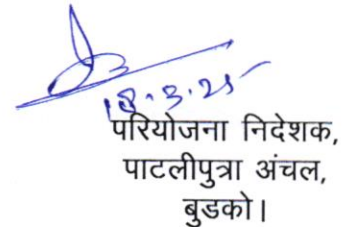 18.3.25
परियोजना निदेशक,
पाटलीपुत्रा अंचल,
बुडको।